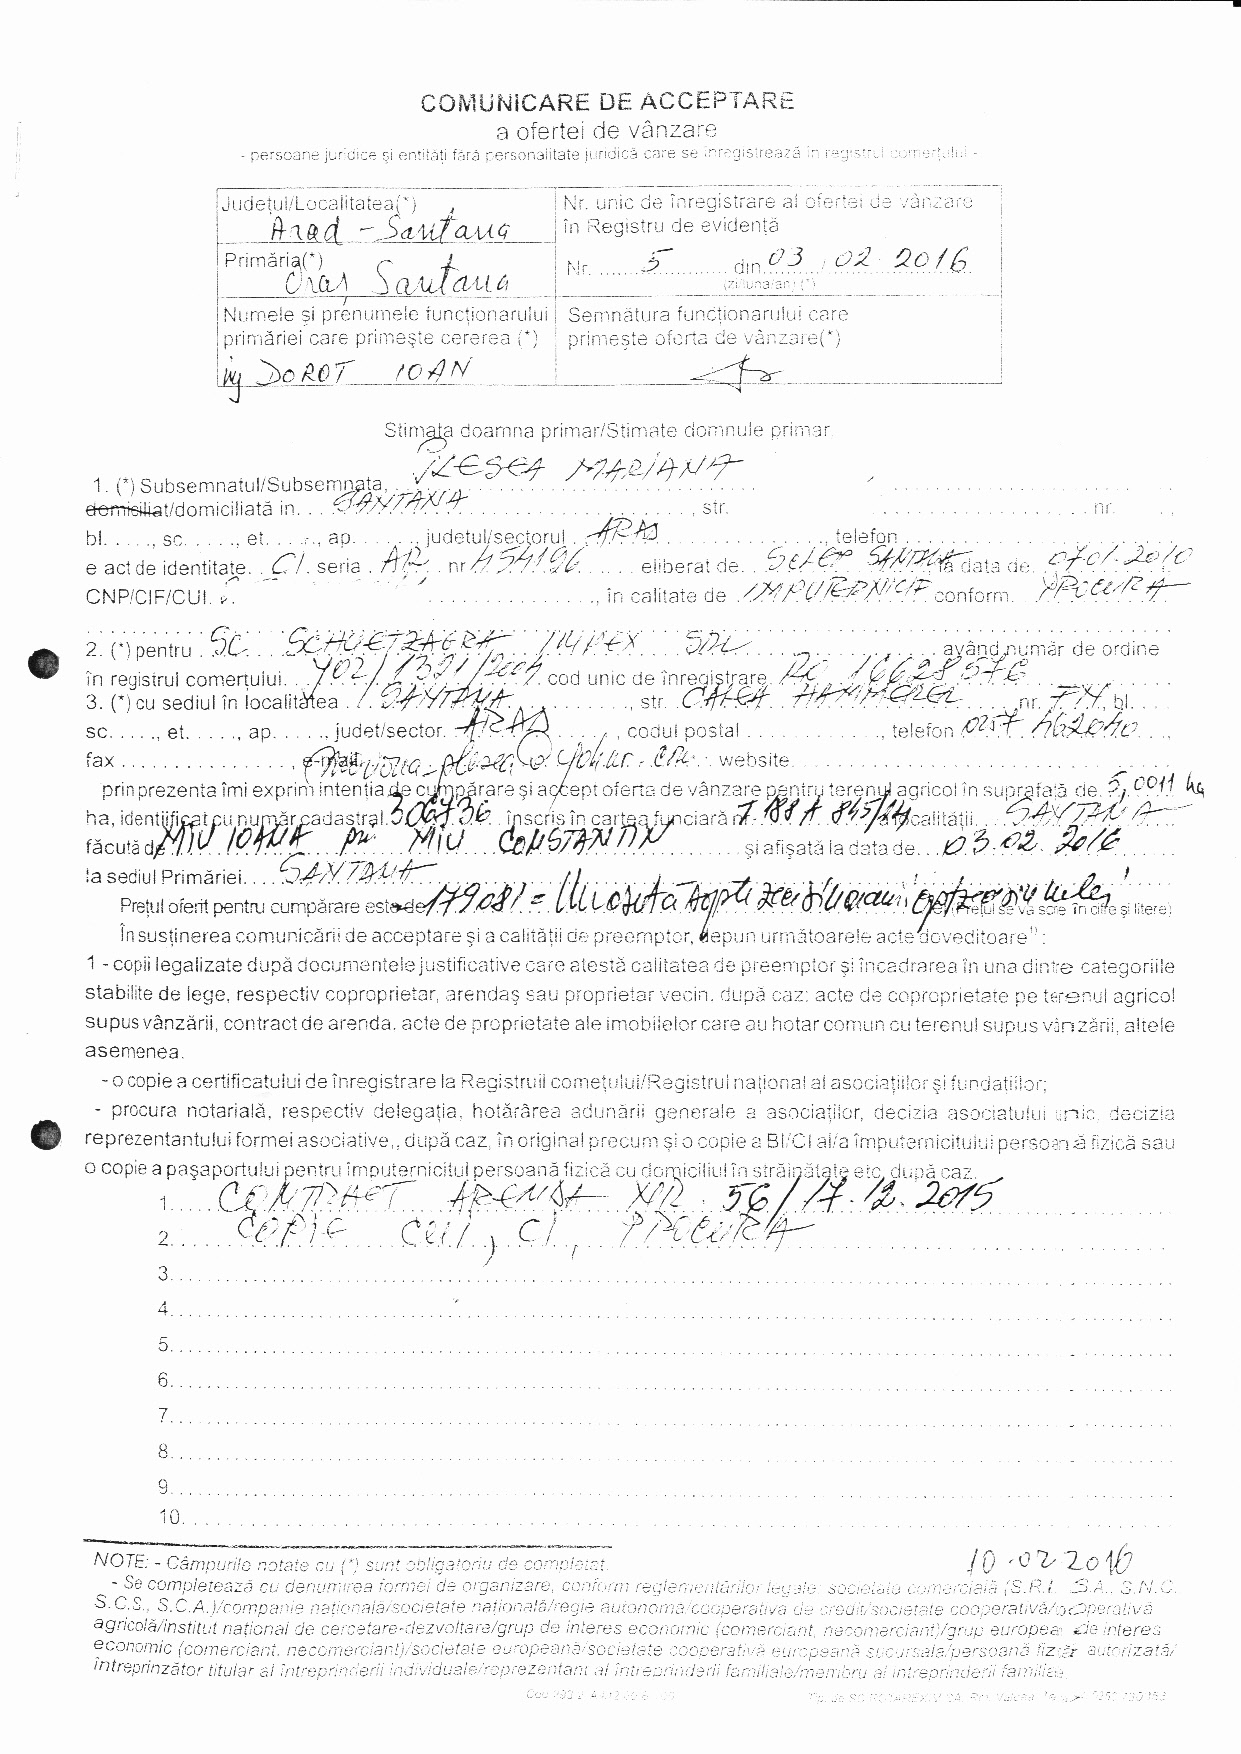 COMUNICARE DE ACCEPTARE
a ofertei de vânzare
- persoane juridice și entități fără personalitate juridică care se înregistrează în registrul comerțului -
Județul/Localitatea(*)
Arad - Santana
Nr. unic de înregistrare al ofertei de vânzare
în Registru de evidență
Primăria(*)
Oraș Santana
Nr. ....... 5 ........... din 03 / 02 2016
(zi/luna/an) (*)
Numele și prenumele funcționarului
primăriei care primește cererea (*)
Semnătura funcționarului care
primește oferta de vânzare(*)
ing DOROT IOAN
Stimata doamna primar/Stimate domnule primar
MARIANA
1. (*) Subsemnatul/Subsemnata
domiciliat/domiciliată in. . . SANTANA . . . , str. . . . nr. . .
bl. . . . ., sc. . . . ., et. . . . ., ap. . . . . ., județul/sectorul . ARAD . . . , telefon . . .
e act de identitate. . CI. seria . AR. . nr 454196 . . . eliberat de. . SANTANA la data de. 07.01.2010
CNP/CIF/CUI. . . . , în calitate de . IMPUTERNICIT conform. PROCURA
2. (*) pentru . SC. . . . IMPEX SRL . . . având număr de ordine
în registrul comerțului. . . J02/1321/2004. cod unic de înregistrare RO 16628576
3. (*) cu sediul în localitatea . SANTANA . . . , str. CALEA . . . nr. FN, bl. . . .
sc. . . . ., et. . . . ., ap. . . . ., județ/sector. ARAD . . . , codul postal . . . , telefon 0257 462040 . . .
fax . . . , e-mail. . . website. . .
prin prezenta îmi exprim intenția de cumpărare și accept oferta de vânzare pentru terenul agricol in suprafață de. 5,0011 ha
ha, identificat cu număr cadastral. 306736 . înscris în cartea funciară nr. . . . calitații. . . SANTANA . . .
făcută de MIU IOANA MIU CONSTANTIN . . . și afișată la data de. . . 03. 02. 2016 . . .
la sediul Primăriei. . . . SANTANA
Prețul oferit pentru cumpărare este de 179081 = . . . Prețul se va scrie în cifre și litere)
În susținerea comunicării de acceptare și a calității de preemptor, depun următoarele acte doveditoare¹⁾ :
1 - copii legalizate după documentele justificative care atestă calitatea de preemptor și încadrarea în una dintre categoriile
stabilite de lege, respectiv coproprietar, arendaș sau proprietar vecin, după caz: acte de coproprietate pe terenul agricol
supus vânzării, contract de arenda, acte de proprietate ale imobilelor care au hotar comun cu terenul supus vânzării, altele
asemenea.
- o copie a certificatului de înregistrare la Registrul comețului/Registrul național al asociațiilor și fundațiilor;
- procura notarială, respectiv delegația, hotărârea adunării generale a asociaților, decizia asociatului unic, decizia
reprezentantului formei asociative,, după caz, în original precum și o copie a BI/CI al/a împuternicitului persoană fizică sau
o copie a pașaportului pentru împuternicitul persoană fizică cu domiciliul în străinătate etc, după caz.
1. . . . . CONTRACT ARENDA NR. 56 / 17. 12. 2015
2. . . . . COPIE CUI, CI, PROCURA
3. . . .
4. . . .
5. . . .
6. . . .
7. . . .
8. . . .
9. . . .
10. . . .
10.02 2016
NOTE: - Câmpurile notate cu (*) sunt obligatoriu de completat.
- Se completează cu denumirea formei de organizare, conform reglementărilor legale: societate comercială (S.R.L. S.A., S.N.C.
S.C.S., S.C.A.)/companie națională/societate națională/regie autonoma/cooperativă de credit/societate cooperativă/cooperativă
agricolă/institut național de cercetare-dezvoltare/grup de interes economic (comerciant, necomerciant)/grup european de interes
economic (comerciant, necomerciant)/societate europeană/societate cooperativă europeană sucursala/persoană fizică autorizată/
întreprinzător titular al întreprinderii individuale/reprezentant al întreprinderii familiale/membru al întreprinderii familiale